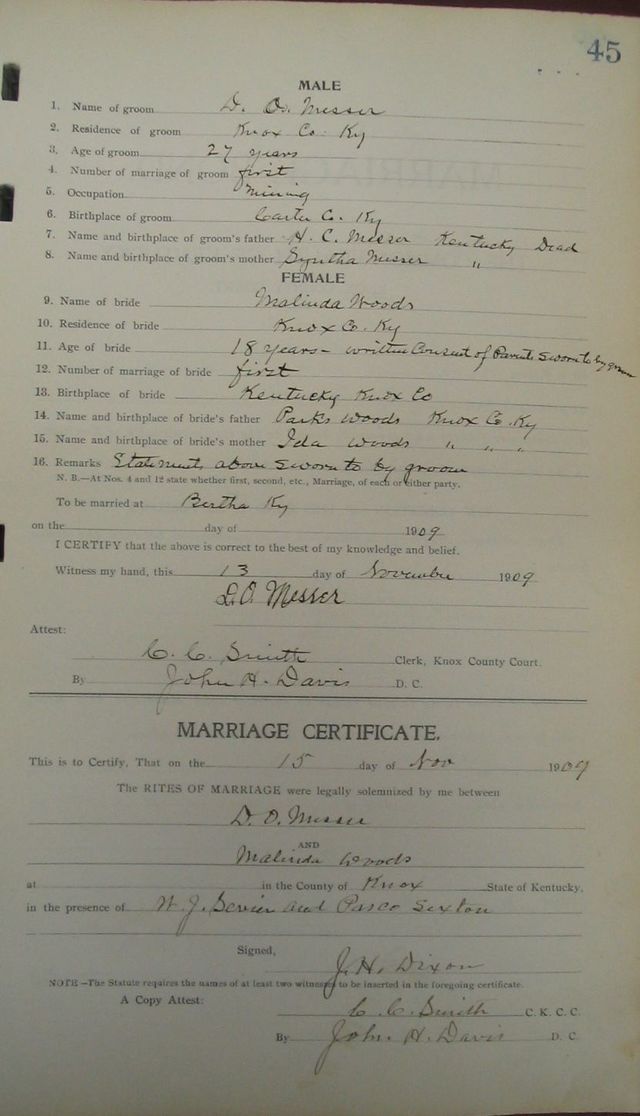 45
MALE
1. Name of groom D. O. Messer
2. Residence of groom Knox Co. Ky
3. Age of groom 27 years
4. Number of marriage of groom first
5. Occupation Mining
6. Birthplace of groom Carter Co. Ky
7. Name and birthplace of groom's father H. C. Messer Kentucky Dead
8. Name and birthplace of groom's mother Syntha Messer "
FEMALE
9. Name of bride Malinda Woods
10. Residence of bride Knox Co. Ky
11. Age of bride 18 years – written Consent of Parents sworn to by groom
12. Number of marriage of bride first
13. Birthplace of bride Kentucky Knox Co
14. Name and birthplace of bride's father Parks Woods Knox Co. Ky
15. Name and birthplace of bride's mother Ida Woods " " "
16. Remarks Statements above sworn to by groom
N. B.—At Nos. 4 and 12 state whether first, second, etc., Marriage, of each or either party.
To be married at Bertha Ky
on the day of 1909
I CERTIFY that the above is correct to the best of my knowledge and belief.
Witness my hand, this 13 day of November 1909
D.O. Messer
Attest:
C. C. Smith Clerk, Knox County Court.
By John H. Davis D. C.
MARRIAGE CERTIFICATE.
This is to Certify, That on the 15 day of Nov 1909
The RITES OF MARRIAGE were legally solemnized by me between
D. O. Messer
AND
Malinda Woods
at in the County of Knox State of Kentucky,
in the presence of W. J. and Pasco Sexton
Signed,
J. H. Dixon
NOTE—The Statute requires the names of at least two witnesses to be inserted in the foregoing certificate.
A Copy Attest:
C. C. Smith C. K. C. C.
By John H. Davis D. C.